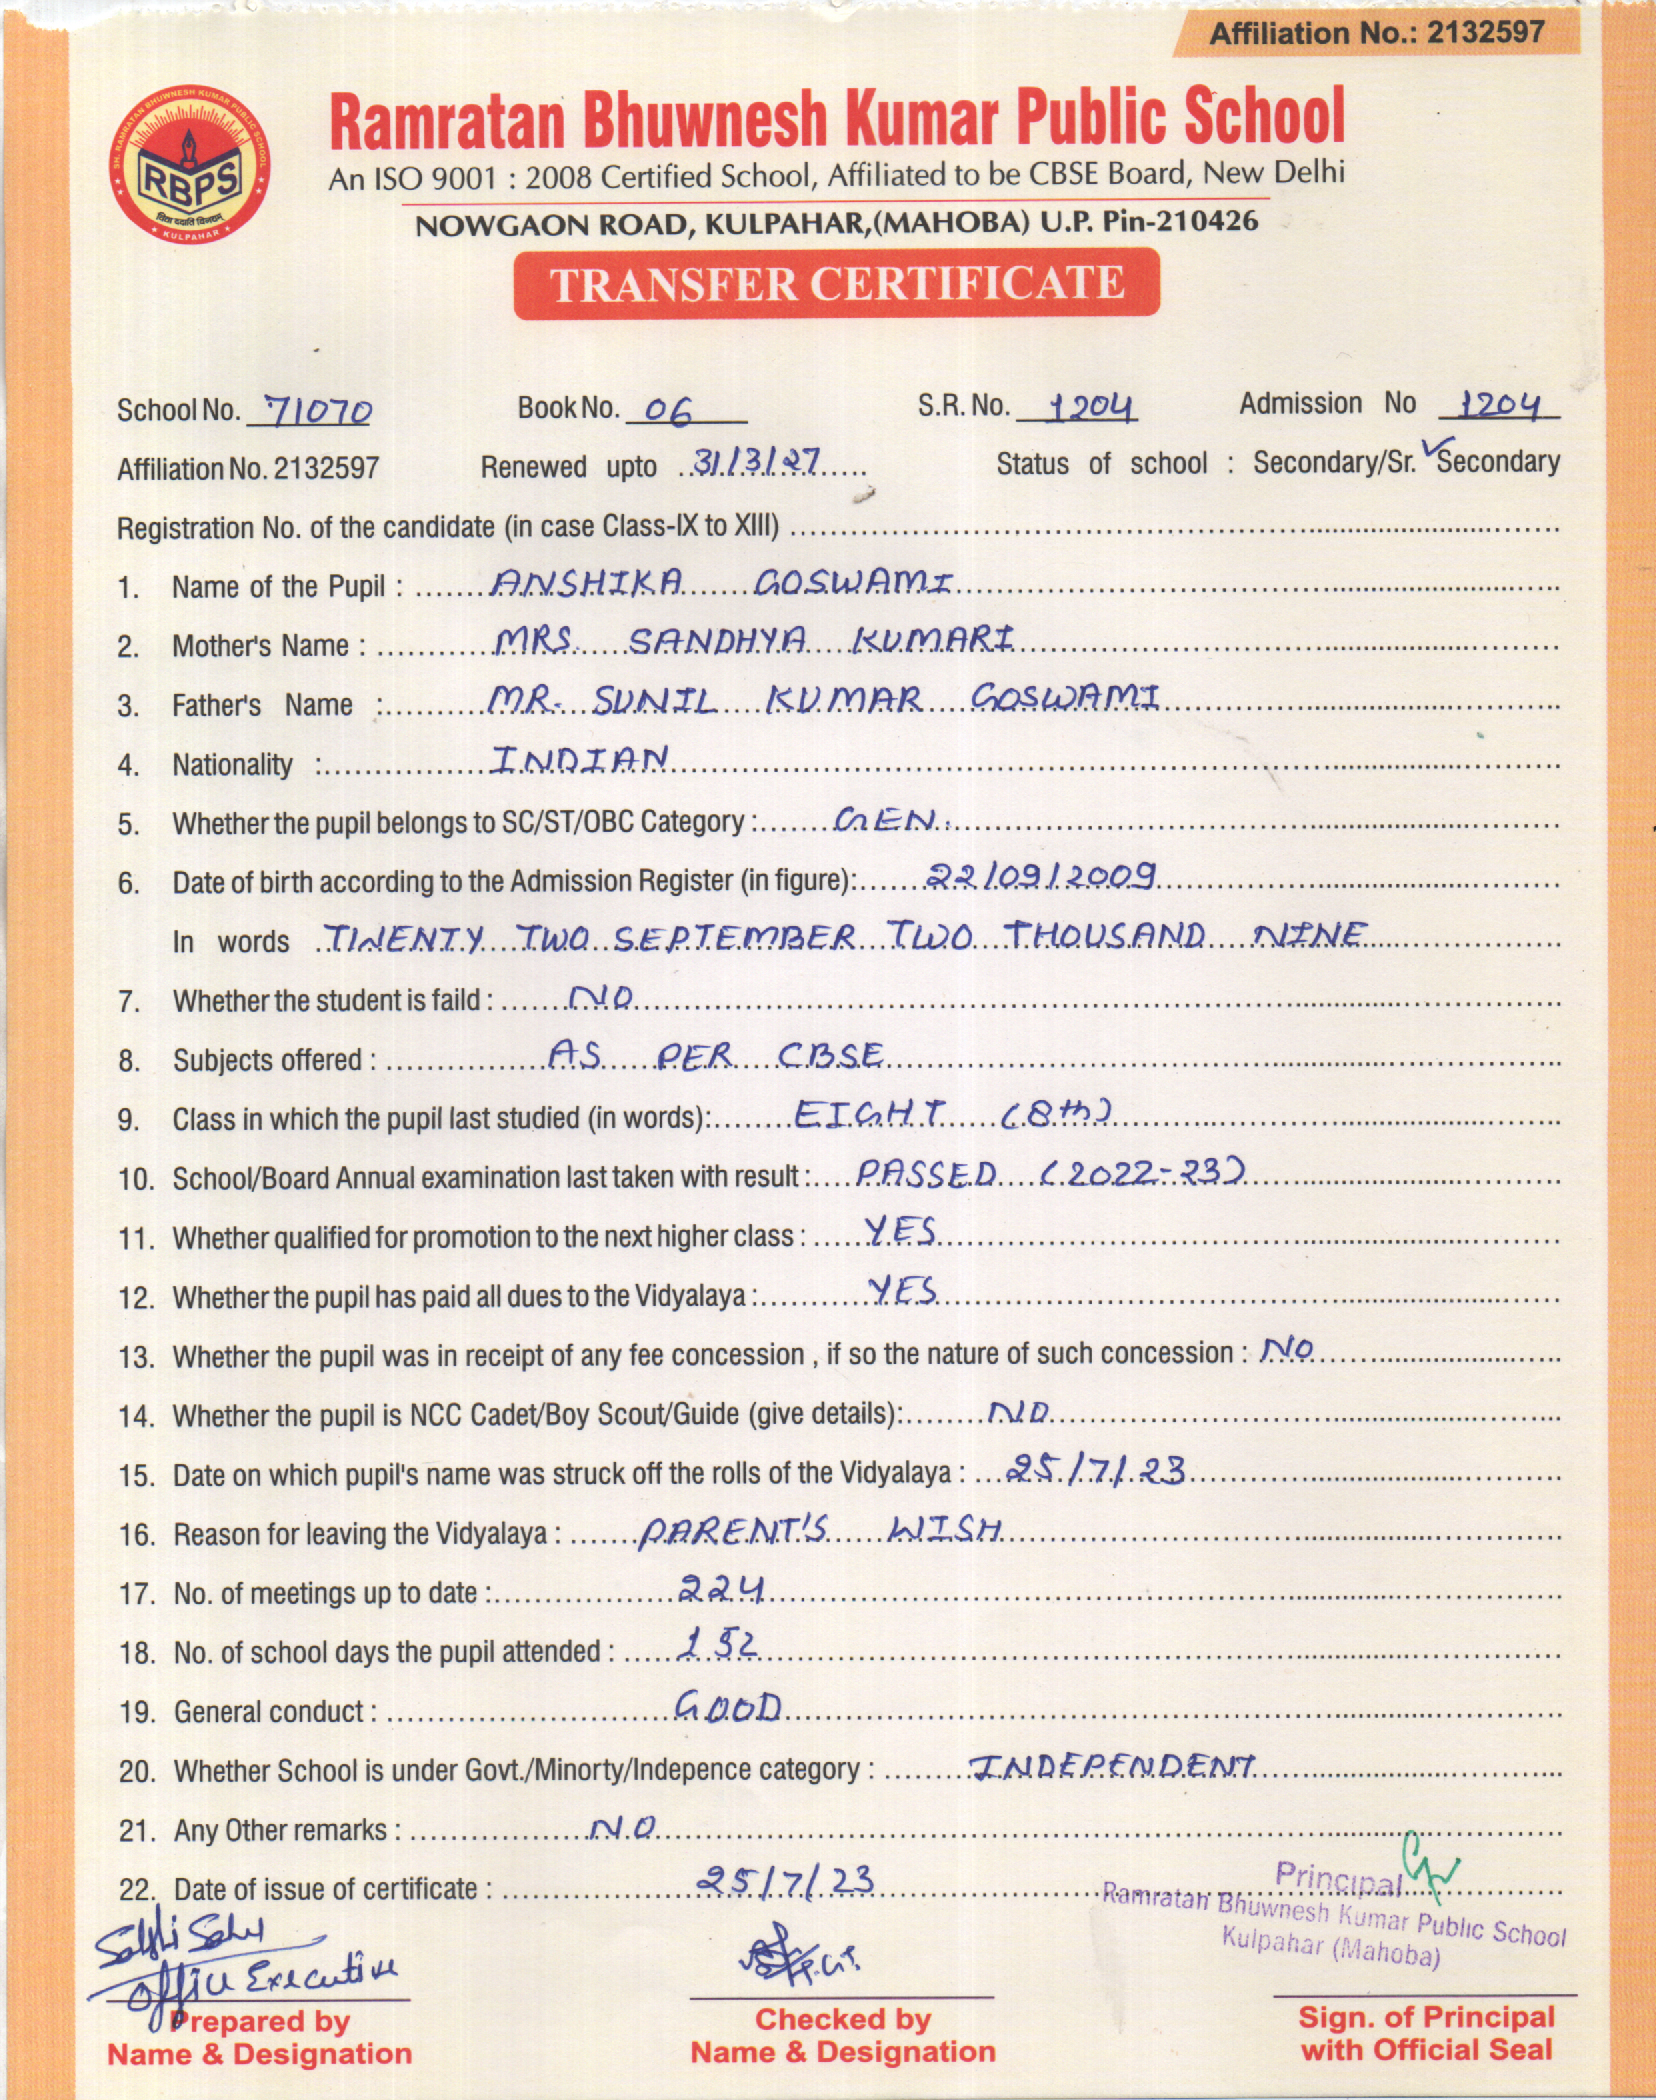 Affiliation No.: 2132597
SH. RAMRATAN BHUWNESH KUMAR PUBLIC SCHOOL
RBPS
विद्या ददाति विनयम्
KULPAHAR
Ramratan Bhuwnesh Kumar Public School
An ISO 9001 : 2008 Certified School, Affiliated to be CBSE Board, New Delhi
NOWGAON ROAD, KULPAHAR,(MAHOBA) U.P. Pin-210426
TRANSFER CERTIFICATE
School No. 71070 Book No. 06 S.R. No. 1204 Admission No 1204
Affiliation No. 2132597 Renewed upto 31/3/27 Status of school : Secondary/Sr. ✓Secondary
Registration No. of the candidate (in case Class-IX to XIII)
1. Name of the Pupil : ANSHIKA GOSWAMI
2. Mother's Name : MRS. SANDHYA KUMARI
3. Father's Name : MR. SUNIL KUMAR GOSWAMI
4. Nationality : INDIAN
5. Whether the pupil belongs to SC/ST/OBC Category : GEN.
6. Date of birth according to the Admission Register (in figure): 22/09/2009
In words TWENTY TWO SEPTEMBER TWO THOUSAND NINE
7. Whether the student is faild : NO
8. Subjects offered : AS PER CBSE
9. Class in which the pupil last studied (in words): EIGHT (8th)
10. School/Board Annual examination last taken with result : PASSED (2022-23)
11. Whether qualified for promotion to the next higher class : YES
12. Whether the pupil has paid all dues to the Vidyalaya : YES
13. Whether the pupil was in receipt of any fee concession , if so the nature of such concession : NO
14. Whether the pupil is NCC Cadet/Boy Scout/Guide (give details): NO
15. Date on which pupil's name was struck off the rolls of the Vidyalaya : 25/7/23
16. Reason for leaving the Vidyalaya : PARENT'S WISH
17. No. of meetings up to date : 224
18. No. of school days the pupil attended : 152
19. General conduct : GOOD
20. Whether School is under Govt./Minorty/Indepence category : INDEPENDENT
21. Any Other remarks : NO
22. Date of issue of certificate : 25/7/23
Principal
Ramratan Bhuwnesh Kumar Public School
Kulpahar (Mahoba)
Office Executive
Prepared by
Name & Designation
Checked by
Name & Designation
Sign. of Principal
with Official Seal